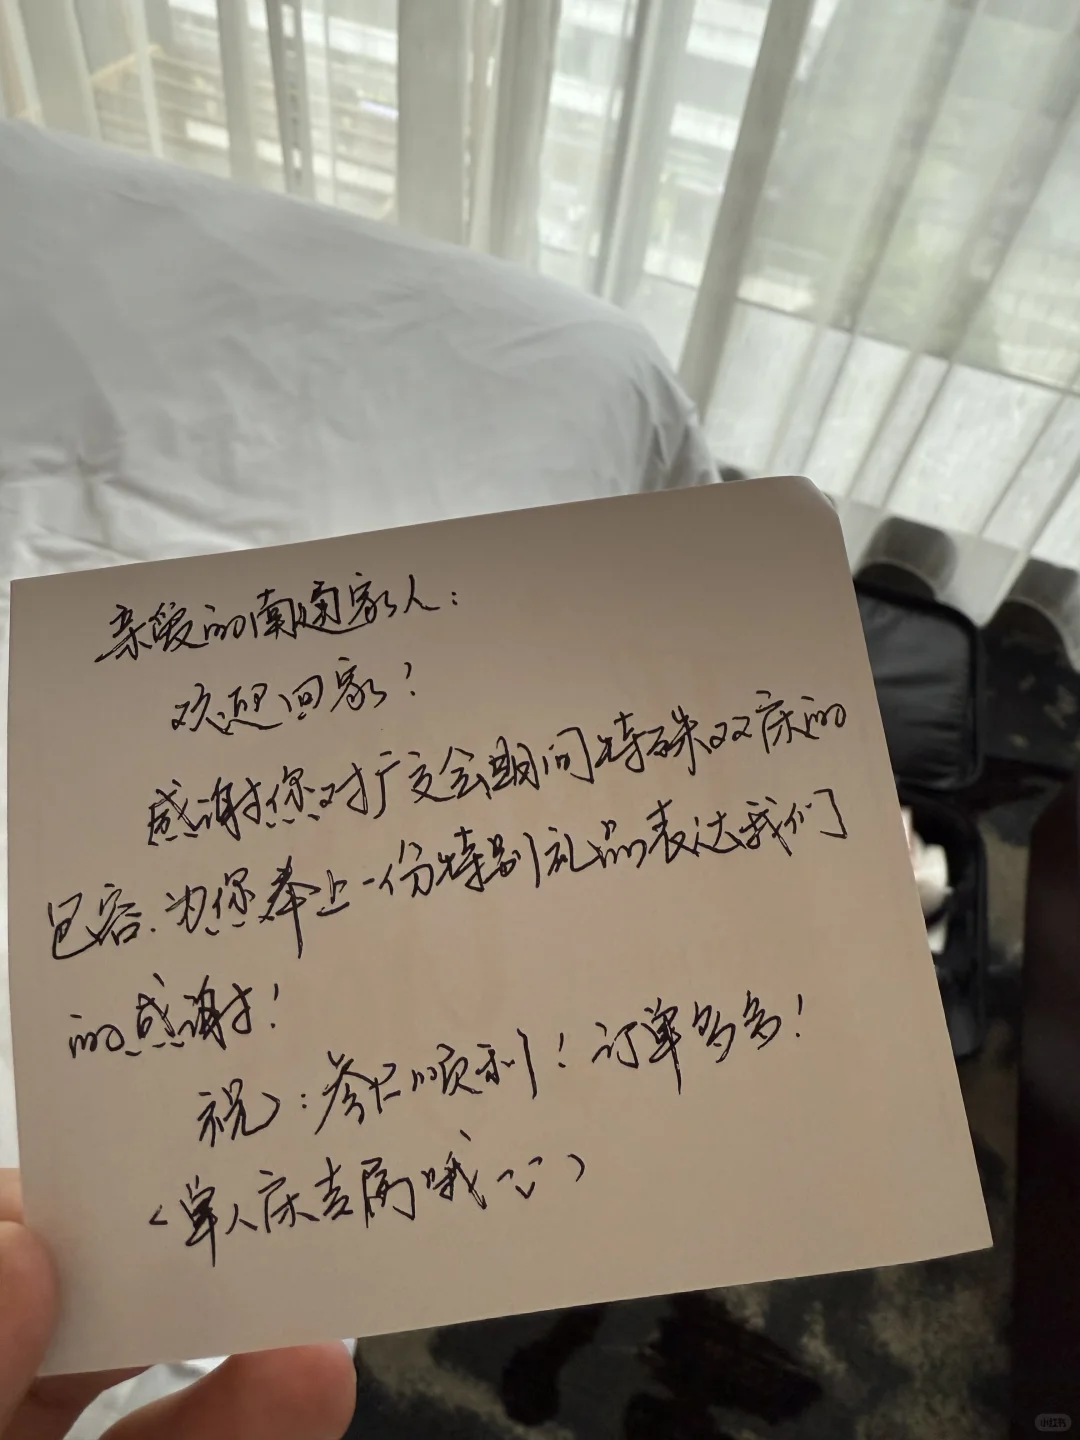 亲爱的南通家人：
欢迎回家！
感谢您对广交会期间特殊双床的
包容.为您奉上一份特别礼品表达我们
的感谢！
祝：参展顺利！订单多多！
（单人床专属哦）
小红书